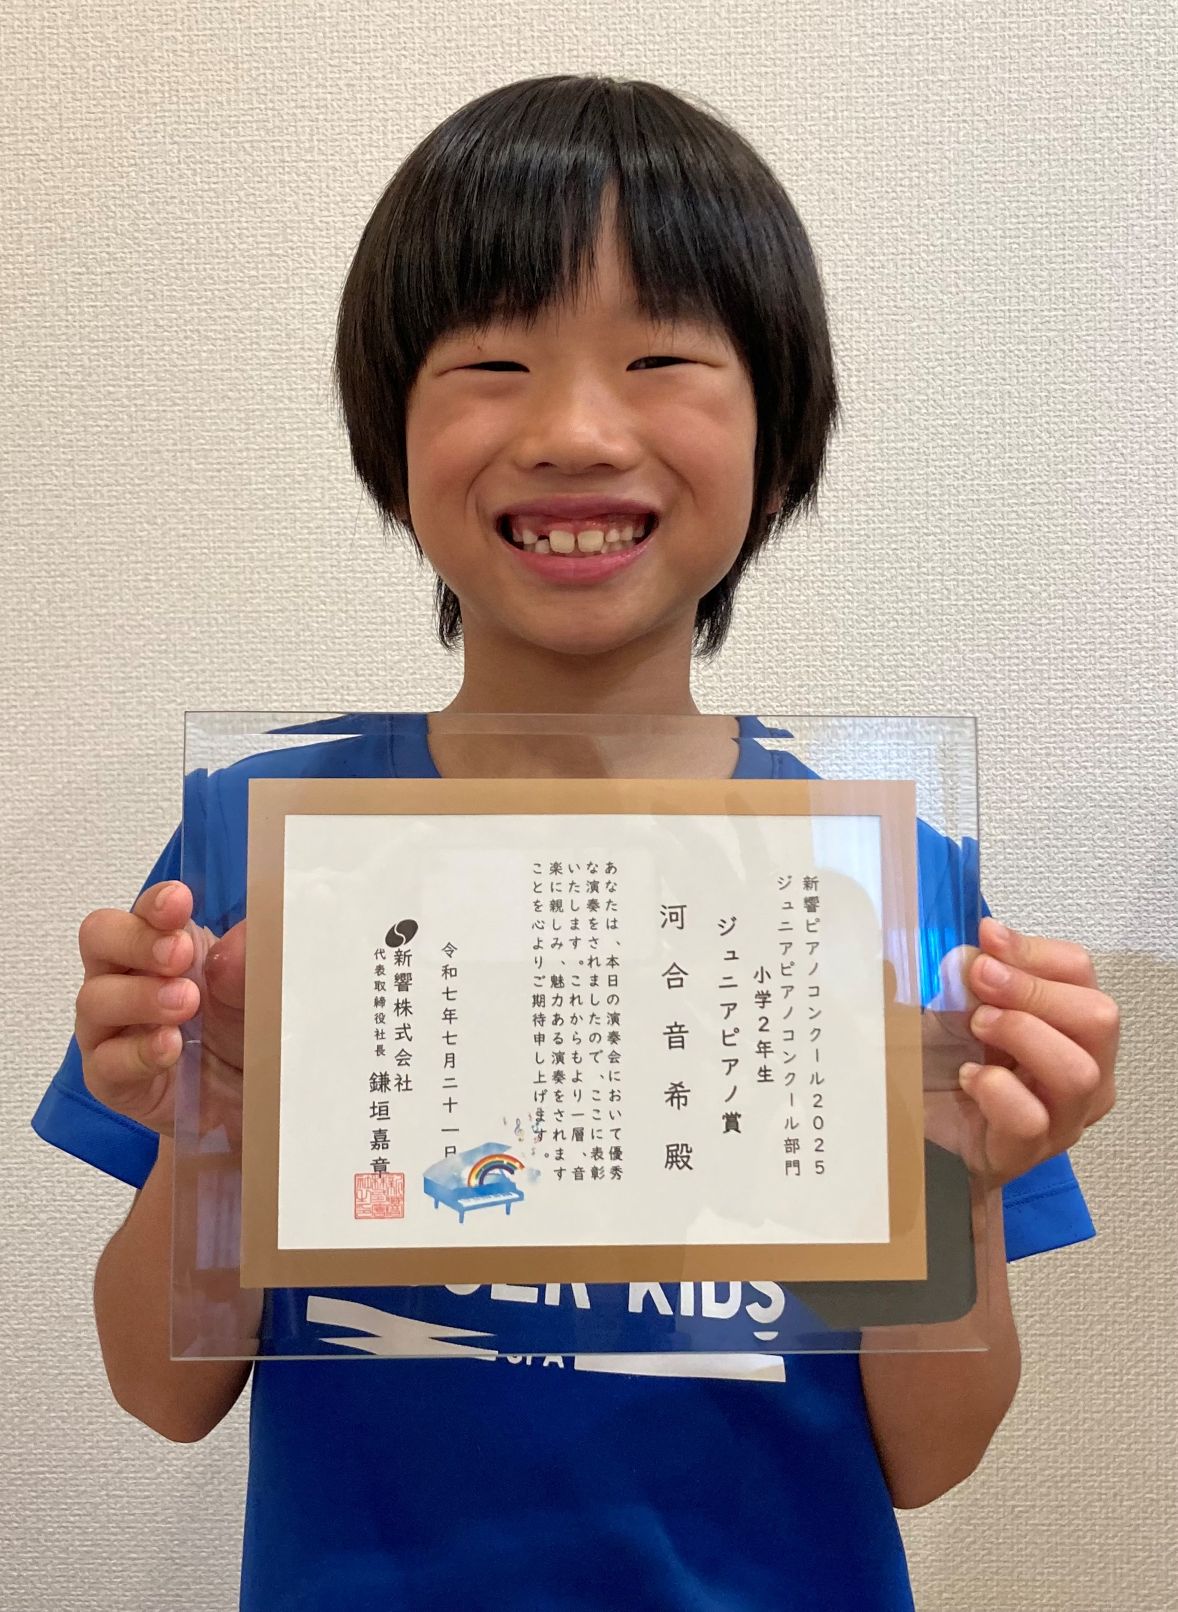 新響ピアノコンクール2025
ジュニアピアノコンクール部門
小学2年生
ジュニアピアノ賞
河合音希殿
あなたは、本日の演奏会において優秀
な演奏をされましたので、ここに表彰
いたします。これからもより一層、音
楽に親しみ、魅力ある演奏をされます
ことを心よりご期待申し上げます。
令和七年七月二十一日
新響株式会社
代表取締役社長 鎌垣嘉章
KIDS